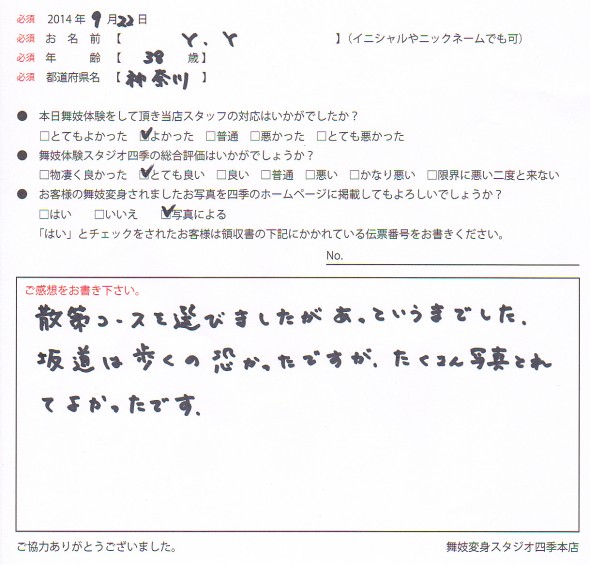 必須 2014年9月22日
必須 お名前【 Y、Y 】（イニシャルやニックネームでも可）
必須 年齢【 38 歳】
必須 都道府県名【 神奈川 】
● 本日舞妓体験をして頂き当店スタッフの対応はいかがでしたか？
□とてもよかった ☑よかった □普通 □悪かった □とても悪かった
● 舞妓体験スタジオ四季の総合評価はいかがでしょうか？
□物凄く良かった ☑とても良い □良い □普通 □悪い □かなり悪い □限界に悪い二度と来ない
● お客様の舞妓変身されましたお写真を四季のホームページに掲載してもよろしいでしょうか？
□はい □いいえ ☑写真による
「はい」とチェックをされたお客様は領収書の下記にかかれている伝票番号をお書きください。
No.
ご感想をお書き下さい。
散策コースを選びましたがあっていうまでした、
坂道は歩くの恐かったですが、たくさん写真とれ
てよかったです、
ご協力ありがとうございました。
舞妓変身スタジオ四季本店